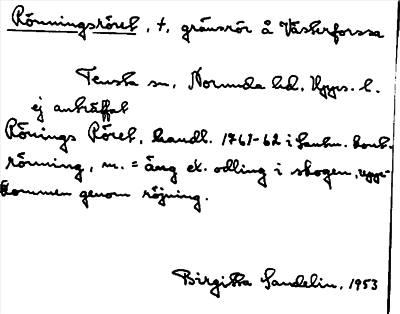 Rönningsröret, †, gränsrör å Västerforssa
Tensta sn, Norunda hd, Upps. l.
ej anträffat
Rönings Röret, handl. 1761-62 i Lantm. kont.
rönning, m. = äng el. odling i skogen, upp-
kommen genom röjning.
Birgitta Sandelin, 1953